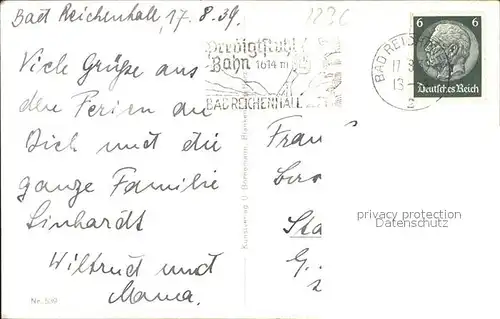 Bad Reichenhall, 17.8.39.
1236
Viele Grüße aus
den Ferien an
Dich und die
ganze Familie
Linhardt
Wiltrud und
Mama.
Nr. 539
Predigtstuhl
Bahn 1614 m
BAD REICHENHALL
BAD REICHEN
17 8
13
a
6 6
Deutsches Reich
Frau
Sta
G.
privacy protection
Datenschutz